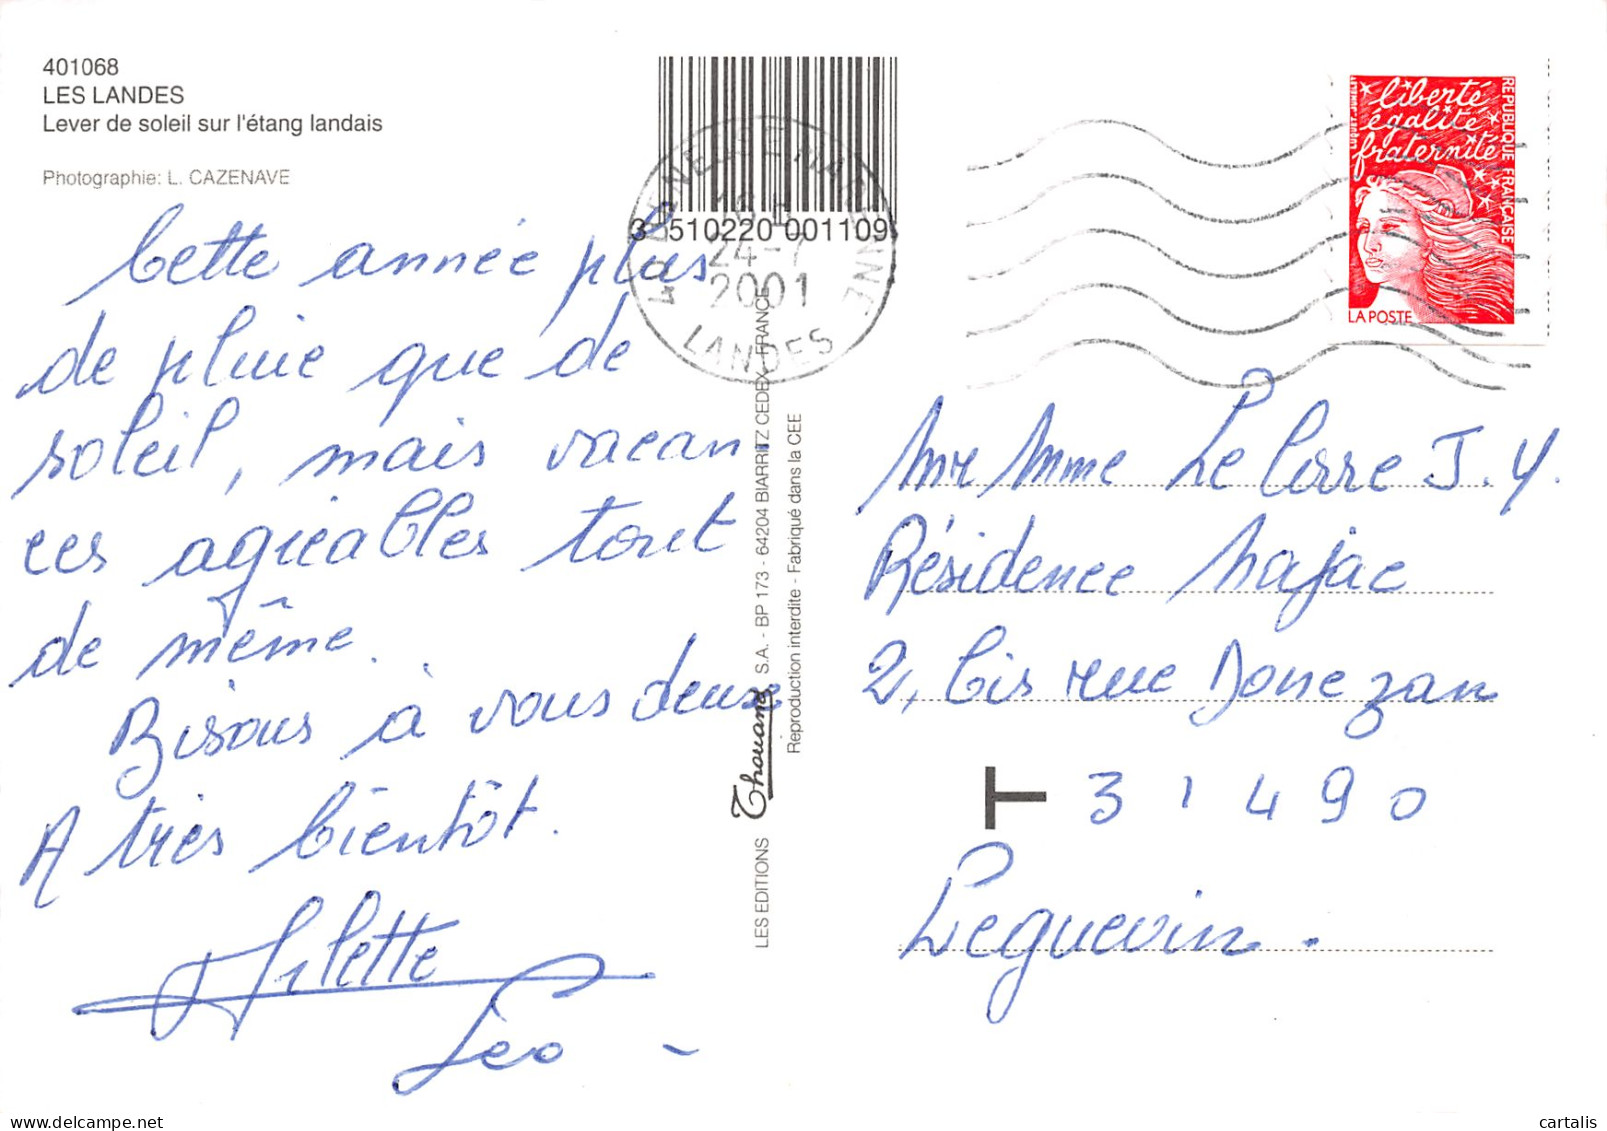 401068
LES LANDES
Lever de soleil sur l'étang landais
Photographie: L. CAZENAVE
Cette année plus
de pluie que de
soleil, mais vacan
ces agréables tout
de même.
Bisous à vous deux
A très bientôt.
Arlette
Leo
3 510220 001109
16 H
24-7
2001
LANDES
LES EDITIONS Thouand S.A. - BP 173 - 64204 BIARRITZ CEDEX - FRANCE
Reproduction interdite - Fabriqué dans la CEE
liberté
égalité
fraternité
REPUBLIQUE FRANÇAISE
LA POSTE
Mr Mme Le Corre J.Y.
Résidence Najac
2, bis rue Donezan
T 31490
Leguevin.
cartalis